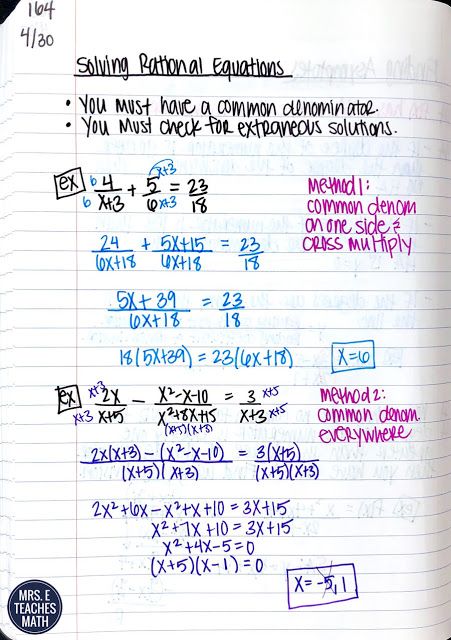 164
4/30
Solving Rational Equations
• You must have a common denominator.
• You must check for extraneous solutions.
ex 6 4/x+3 + 5/6 x+3 = 23/18
6 x+3
Method 1:
common denom
on one side &
cross multiply
24/6x+18 + 5x+15/6x+18 = 23/18
5x+39/6x+18 = 23/18
18(5x+39) = 23(6x+18)
x=6
ex x+3 2x/x+5 − x²-x-10/x²+8x+15 = 3/x+3 x+5
x+3 (x+5)(x+3) x+5
Method 2:
common denom.
everywhere
2x(x+3) − (x²-x-10)/(x+5)(x+3) = 3(x+5)/(x+5)(x+3)
2x²+6x-x²+x+10 = 3x+15
x²+7x+10 = 3x+15
x²+4x-5=0
(x+5)(x-1)=0
x= -5, 1
MRS. E
TEACHES
MATH